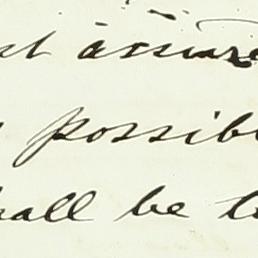 st assure
possib
hall be t